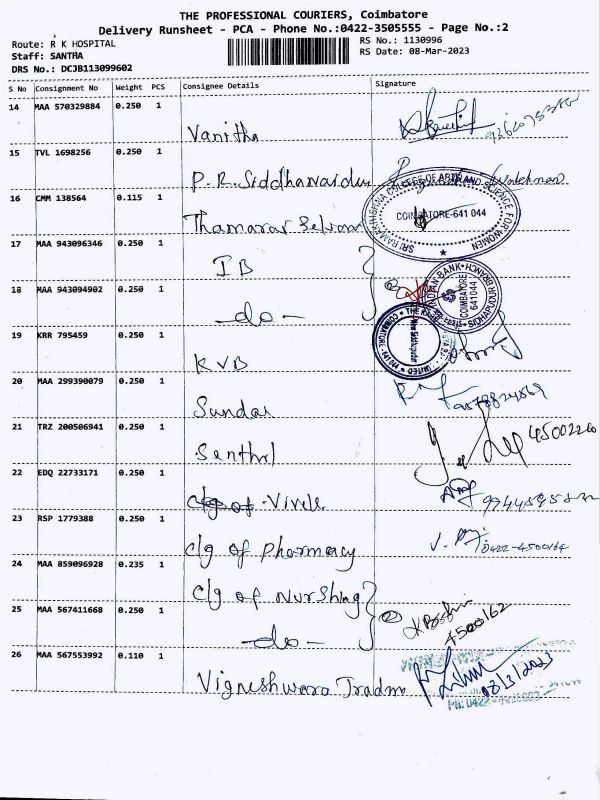 THE PROFESSIONAL COURIERS, Coimbatore
Delivery Runsheet - PCA - Phone No.:0422-3505555 - Page No.:2
Route: R K HOSPITAL
RS No.: 1130996
Staff: SANTHA
RS Date: 08-Mar-2023
DRS No.: DCJB113099602
S No Consignment No Weight PCS Consignee Details Signature
14 MAA 570329884 0.250 1
Vanitha
15 TVL 1698256 0.250 1
P.R. Siddhavaidu
16 CMM 138564 0.115 1
Thamarai Selvan
SRI RAMAKRISHNA COLLEGE OF ARTS AND SCIENCE FOR WOMEN
COIMBATORE-641 044
17 MAA 943096346 0.250 1
IB
18 MAA 943094902 0.250 1
-do-
INDIAN BANK
COIMBATORE
641044
SIDHAPUDUR BRANCH
19 KRR 795459 0.250 1
KVB
New Siddhapudur
20 MAA 299390079 0.250 1
Sundar
21 TRZ 200506941 0.250 1
Senthil
22 EDQ 22733171 0.250 1
clg of Vivek
23 RSP 1779388 0.250 1
clg of Pharmacy
0422-4500164
24 MAA 859096928 0.235 1
clg of Nurshing
25 MAA 567411668 0.250 1
-do-
4500162
26 MAA 567553992 0.110 1
Vigneshwara Tradm
08/3/2023